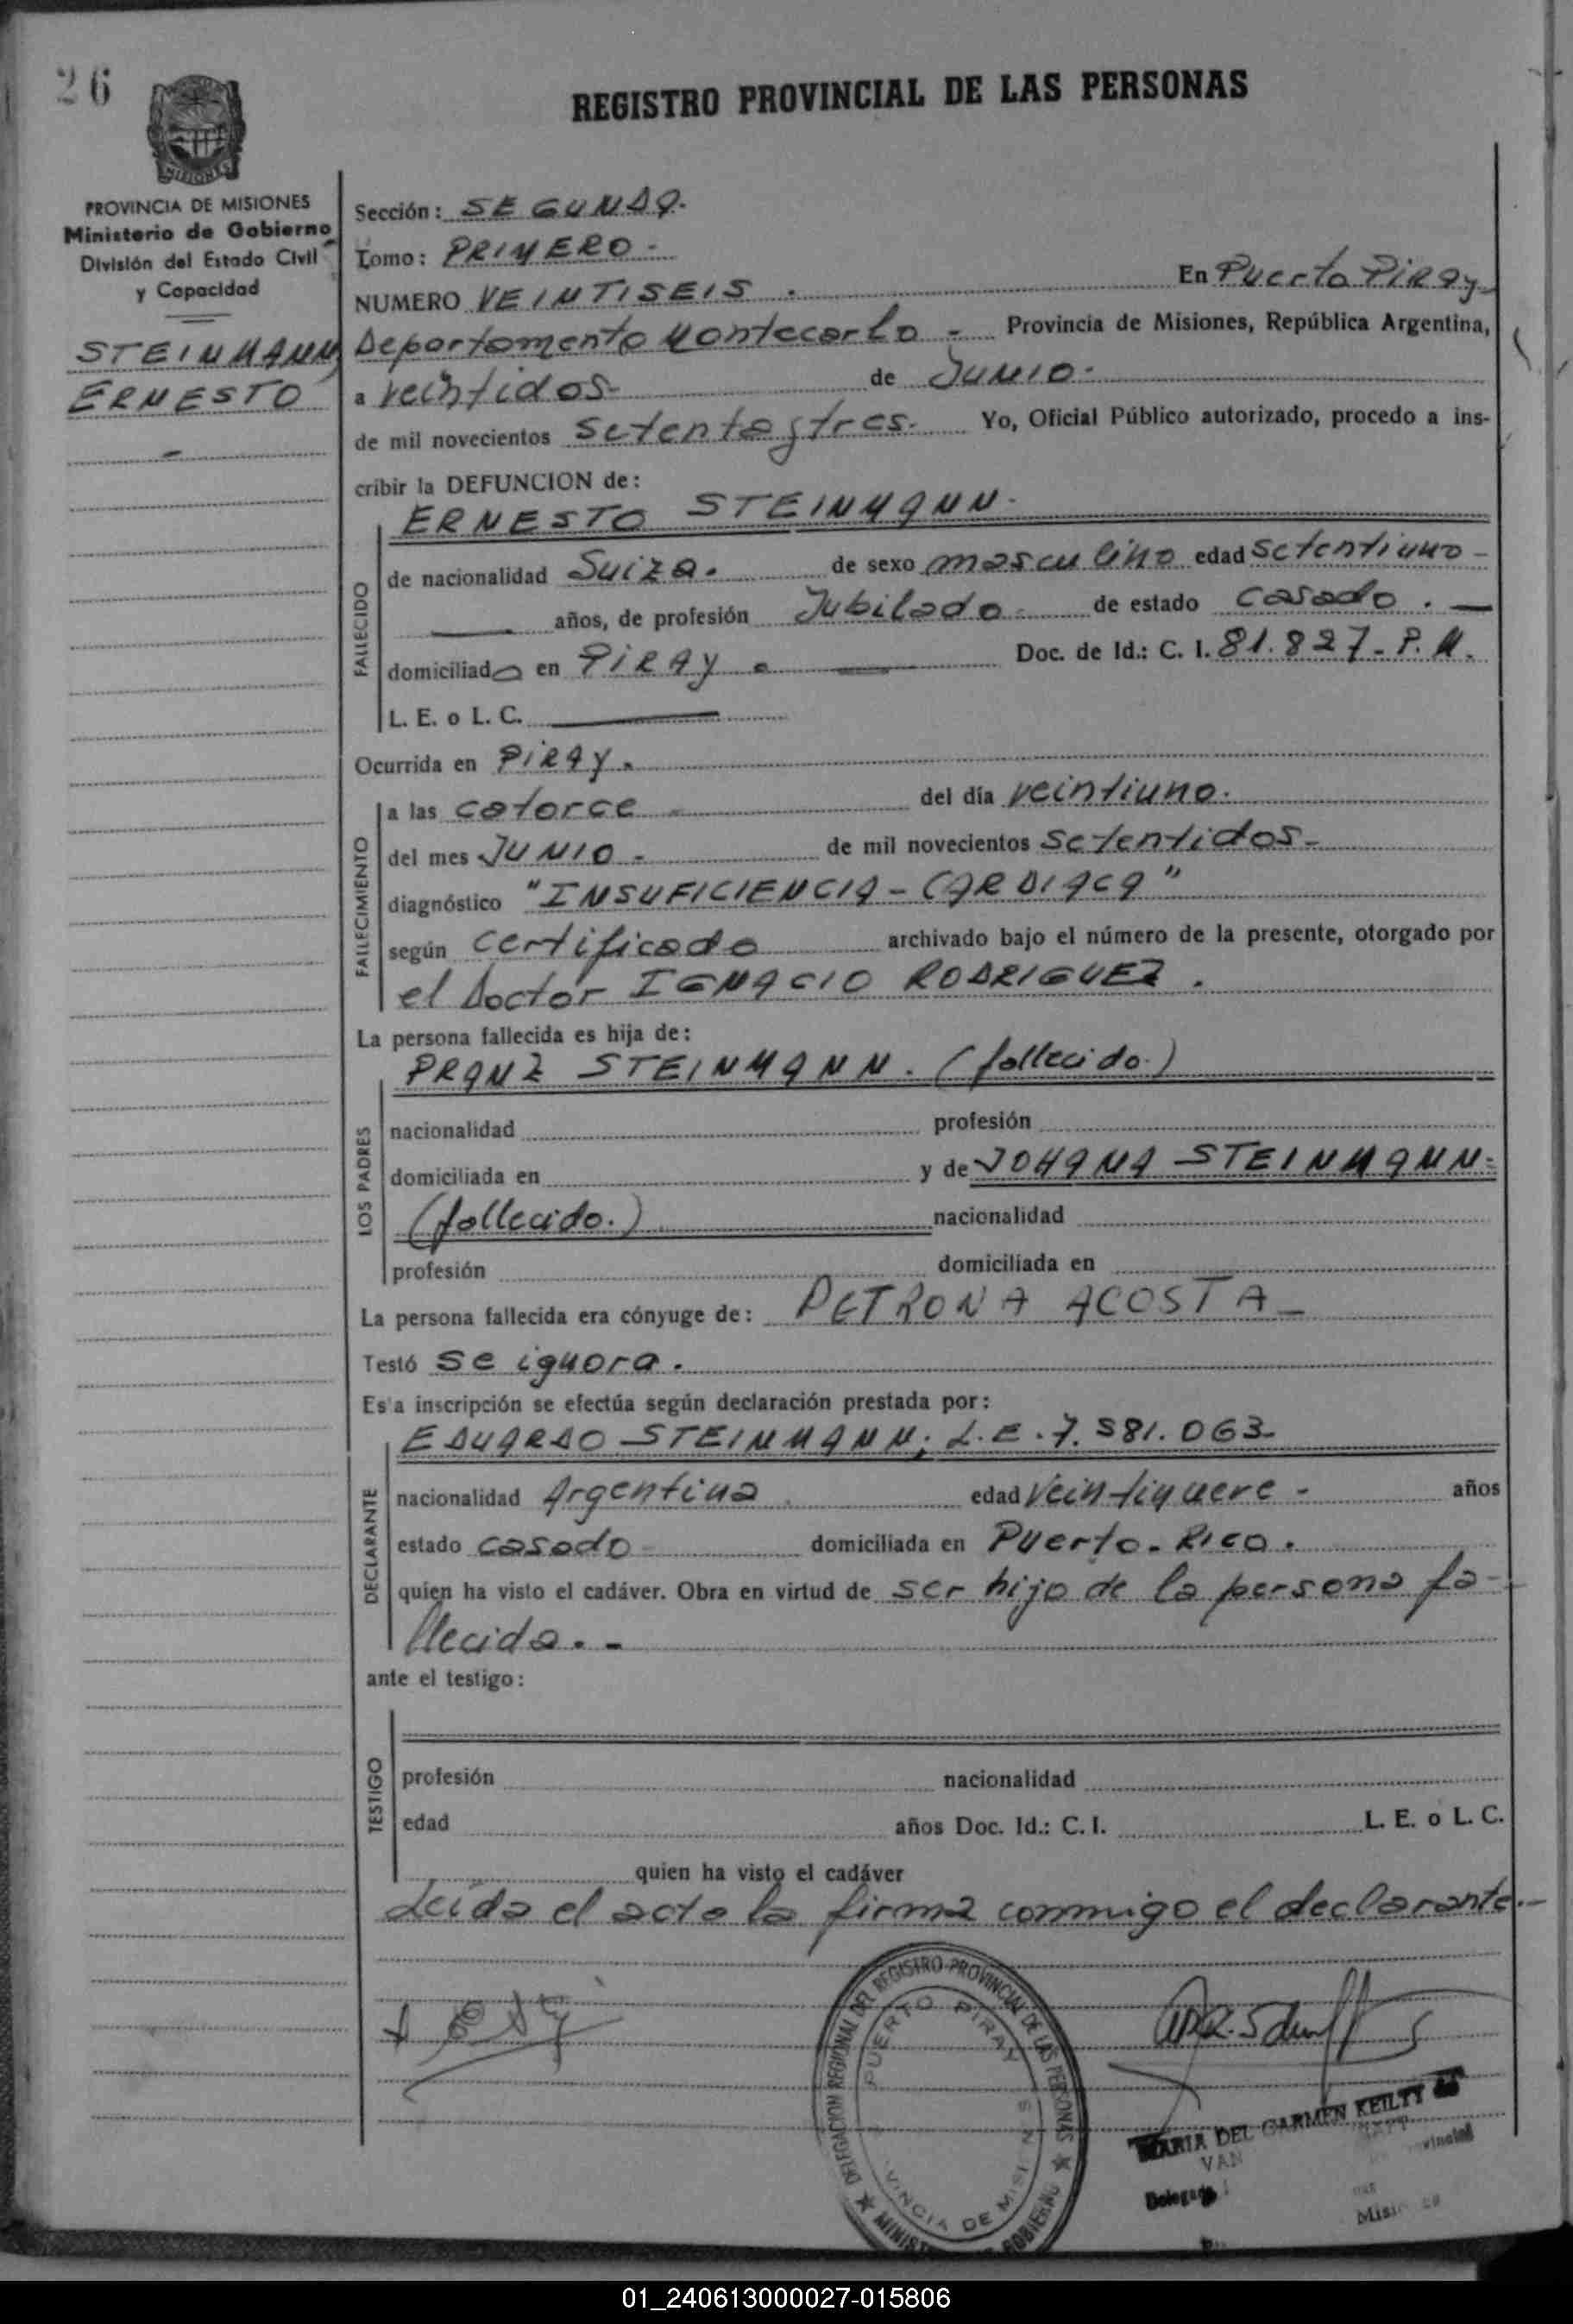 26
REGISTRO PROVINCIAL DE LAS PERSONAS
MISIONES
PROVINCIA DE MISIONES
Ministerio de Gobierno
División del Estado Civil
y Capacidad
STEINMANN,
ERNESTO
Sección: SEGUNDA.
Tomo: PRIMERO -
NUMERO VEINTISEIS . En Puerto Piray
Departamento Montecarlo - Provincia de Misiones, República Argentina,
a veintidos - de JUNIO.
de mil novecientos setenta y tres. Yo, Oficial Público autorizado, procedo a ins-
cribir la DEFUNCION de:
ERNESTO STEINMANN.
FALLECIDO
de nacionalidad Suiza. de sexo masculino edad setentiuno -
años, de profesión Jubilado - de estado casado . —
domiciliado en PIRAY . Doc. de Id.: C. I. 81.827 - P. M.
L. E. o L. C.
Ocurrida en PIRAY .
FALLECIMIENTO
a las catorce - del día veintiuno.
del mes JUNIO - de mil novecientos setentidos -
diagnóstico "INSUFICIENCIA - CARDIACA"
según certificado archivado bajo el número de la presente, otorgado por
el Doctor IGNACIO RODRIGUEZ .
La persona fallecida es hija de:
LOS PADRES
PRANZ STEINMANN. (fallecido.)
nacionalidad profesión
domiciliada en y de JOHANA STEINMANN-
(fallecido.) nacionalidad
profesión domiciliada en
La persona fallecida era cónyuge de: PETRONA ACOSTA -
Testó se ignora .
Es'a inscripción se efectúa según declaración prestada por:
DECLARANTE
EDUARDO STEINMANN; L.E. 7.581.063-
nacionalidad Argentina edad veintinueve - años
estado casado - domiciliada en Puerto - Rico .
quien ha visto el cadáver. Obra en virtud de ser hijo de la persona fa-
llecida. -
ante el testigo:
TESTIGO
profesión nacionalidad
edad años Doc. Id.: C. I. L. E. o L. C.
quien ha visto el cadáver
Leida el acta la firma conmigo el declarante.-
DELEGACION REGIONAL DEL REGISTRO PROVINCIAL DE LAS PERSONAS
PUERTO PIRAY
MARIA DEL CARMEN KEILTY
VAN
01_240613000027-015806